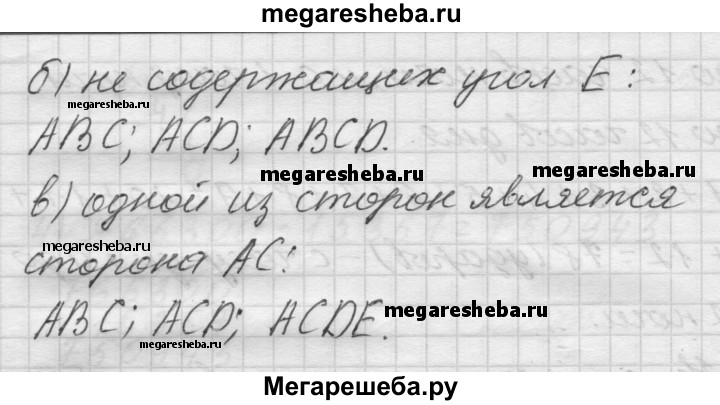 megaresheba.ru
б) не содержащих угол E:
megaresheba.ru
ABC; ACD; ABCD.
megaresheba.ru
megaresheba.ru
в) одной из сторон является
megaresheba.ru
сторона AC:
ABC; ACD; ACDE.
megaresheba.ru
megaresheba.ru
Мегарешеба.ру